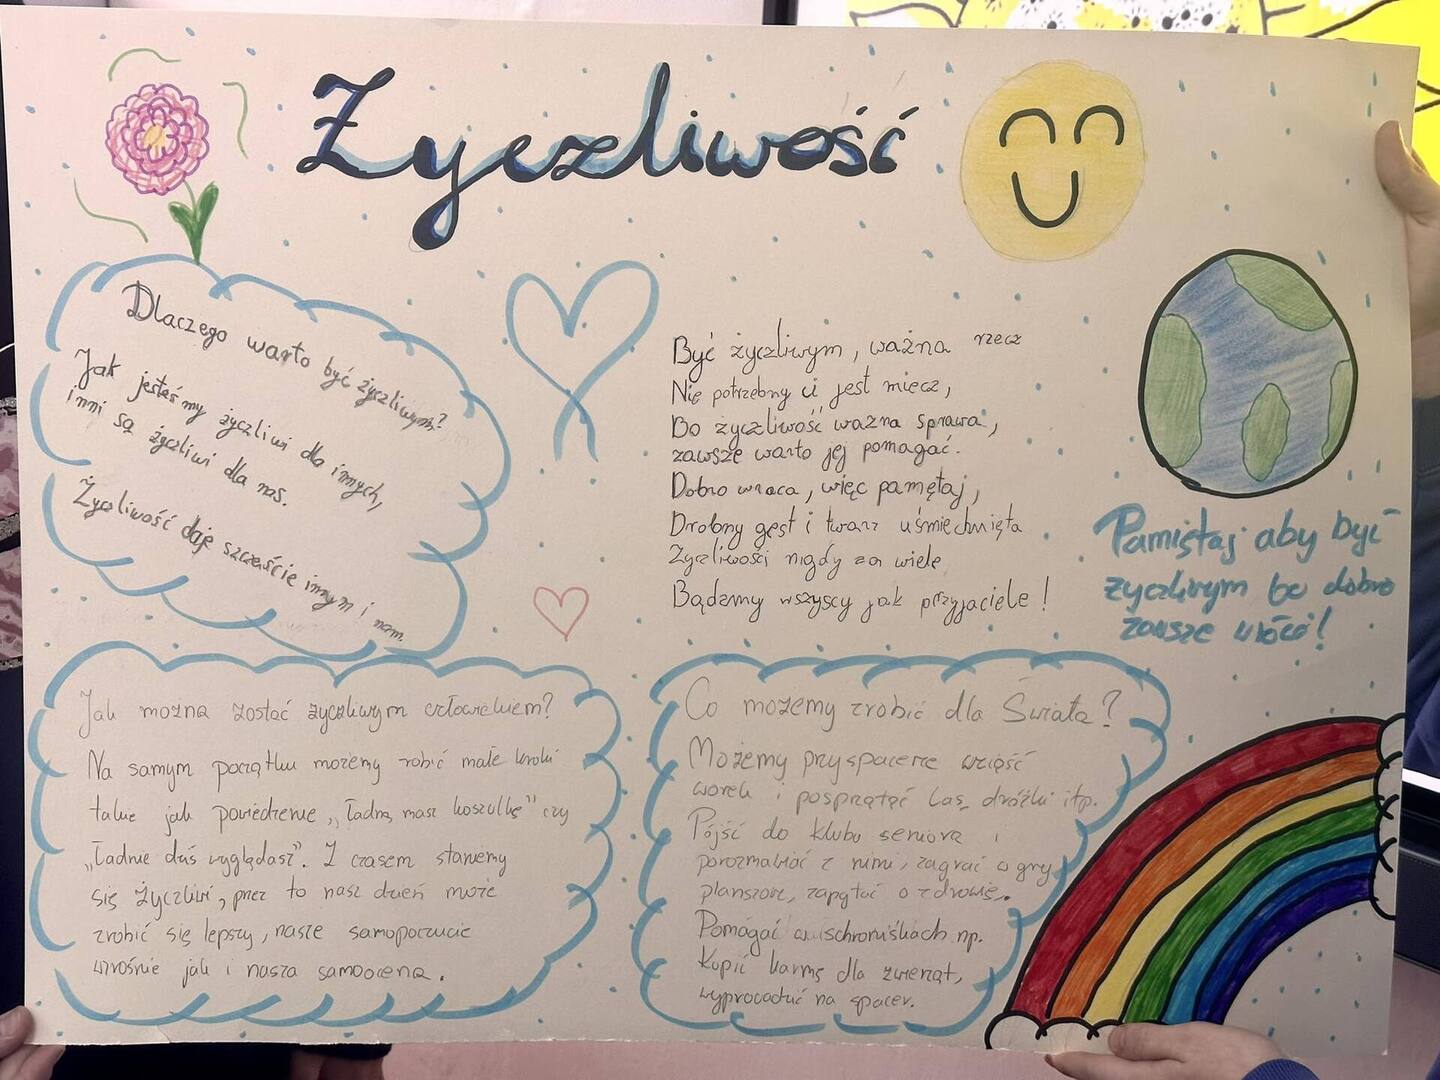 Życzliwość
Dlaczego warto być życzliwym?
Jak jesteśmy życzliwi dla innych,
inni są życzliwi dla nas.
Życzliwość daje szczęście innym i nam.
Być życzliwym, ważna rzecz
Nie potrzebny ci jest miecz,
Bo życzliwość ważna sprawa,
zawsze warto jej pomagać.
Dobro wraca, więc pamętaj,
Drobny gest i twarz uśmiechnięta
Życzliwości nigdy za wiele
Bądźmy wszyscy jak przyjaciele!
Pamiętaj aby być
życzliwym bo dobro
zawsze wróci!
Jak można zostać życzliwym człowiekiem?
Na samym początku możemy robić małe kroki
takie jak powiedzenie „Ładną masz koszulkę” czy
„Ładnie dziś wyglądasz”. Z czasem staniemy
się życzliwi, przez to nasz dzień może
zrobić się lepszy, nasze samopoczucie
wzrośnie jak i nasza samoocena.
Co możemy zrobić dla Świata?
Możemy przy spacerze wziąść
worek i posprzątać las, dróżki itp.
Pójść do klubu seniora i
porozmawiać z nimi, zagrać w gry
planszowe, zapytać o zdrowie.
Pomagać w schroniskach np.
Kupić karmę dla zwierząt,
wyprowadzić na spacer.